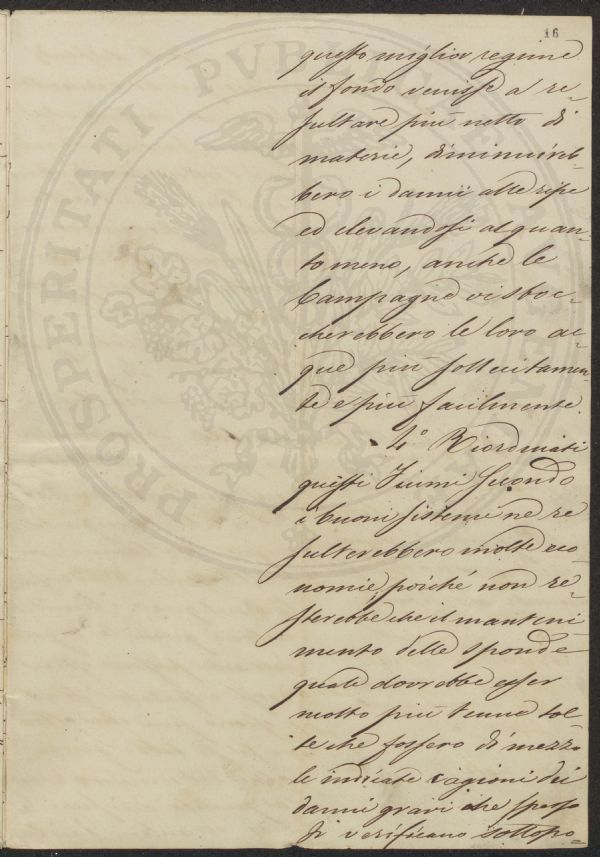 16
questo miglior regime
il fondo venisse a re-
sultare più netto di
materie, diminuireb-
bero i danni alle ripe
ed elevandosi alquan-
to meno, anche le
Campagne vi sboc-
cherebbero le loro ac-
que più sollecitamen-
te e più facilmente.
4° Riordinati
questi Fiumi secondo
i buoni sistemi ne re
sulterebbero molte eco
nomie, poiché non re-
sterebbe che il manteni
mento delle sponde
quale dovrebbe esser
molto più tenue tol-
te che fossero di mezzo
le indicate cagioni dei
danni gravi che spesso
si verificano sottopo-
PROSPERITATI PUBLICAE